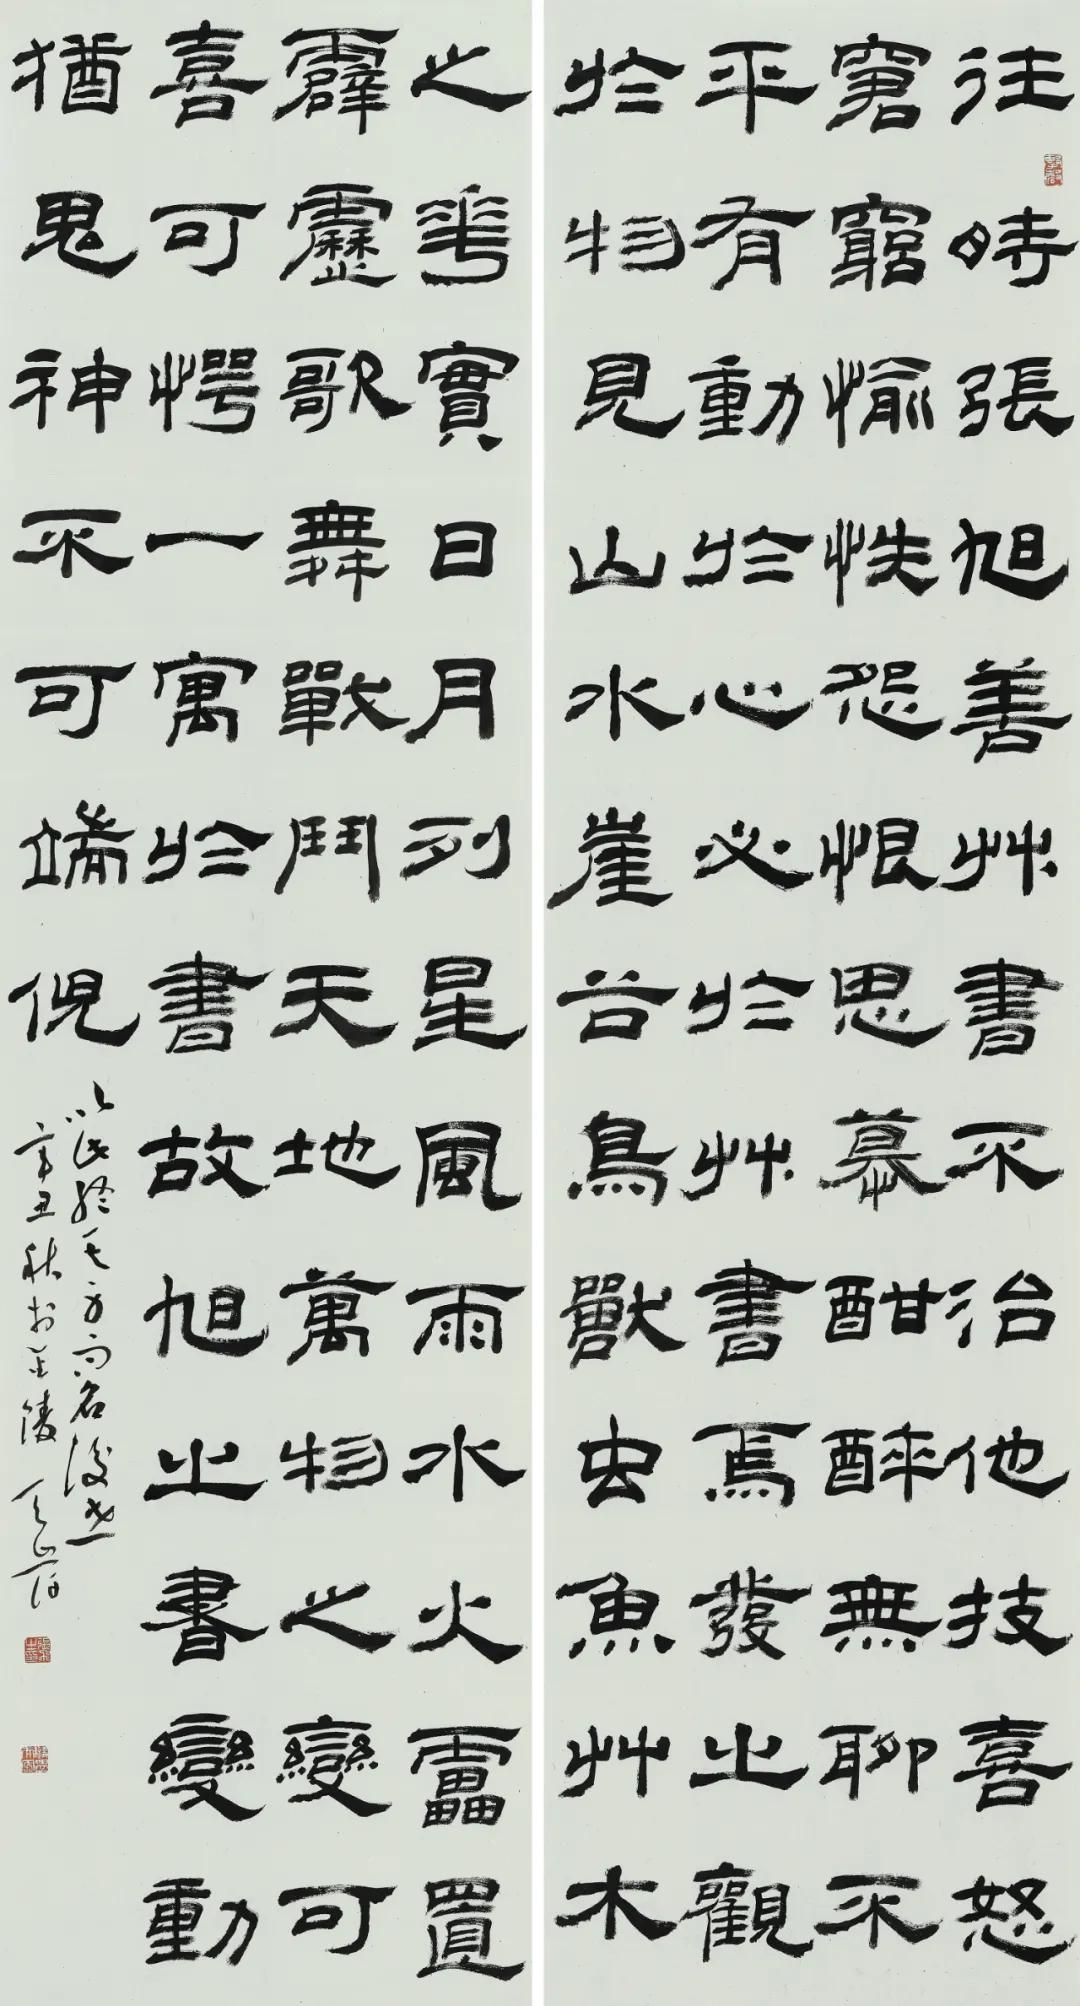 往時張旭善艸書不治他技喜怒
窘窮愉怢怨恨思慕酣醉無聊不
平有動於心必於艸書焉發之觀
於物見山水崖谷鳥獸虫魚艸木
之華實日月列星風雨水火靁置
霹靂歌舞戰鬥天地萬物之變可
喜可愕一寓於書故旭之書變動
猶鬼神不可端倪
以此終其身而名後世
辛丑秋於金陵